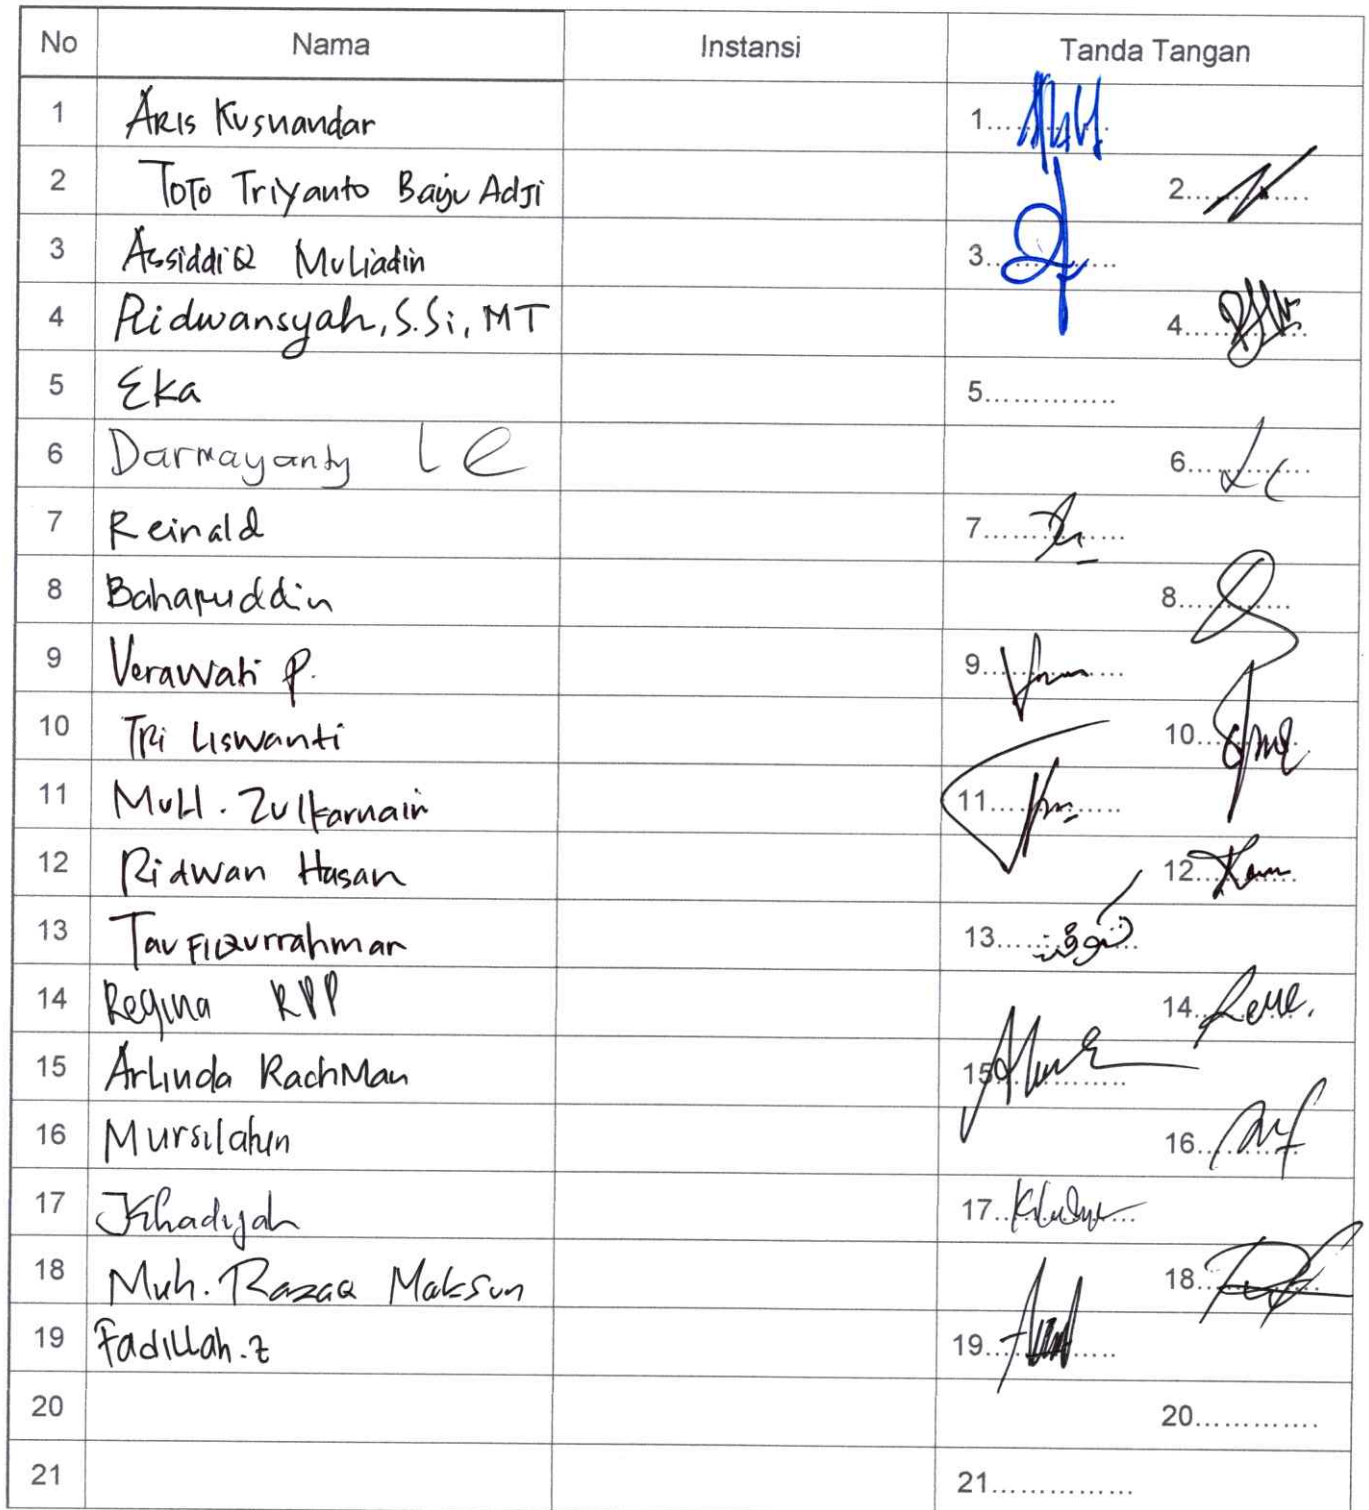 No Nama Instansi Tanda Tangan
1 Aris Kusnandar 1..............
2 Toto Triyanto Baiju Adji 2..............
3 Assiddiq Muliadin 3..............
4 Ridwansyah, S.Si, MT 4..............
5 Eka 5..............
6 Darmayanty L e 6..............
7 Reinald 7..............
8 Baharuddin 8..............
9 Verawati P. 9..............
10 Tri Liswanti 10..............
11 Muh. Zulkarnain 11..............
12 Ridwan Hasan 12..............
13 Taufiqurrahman 13..............
14 Regina RPP 14..............
15 Arlinda Rachman 15..............
16 Mursilahin 16..............
17 Khadijah 17..............
18 Muh. Razaq Maksun 18..............
19 Fadillah.z 19..............
20 20..............
21 21..............